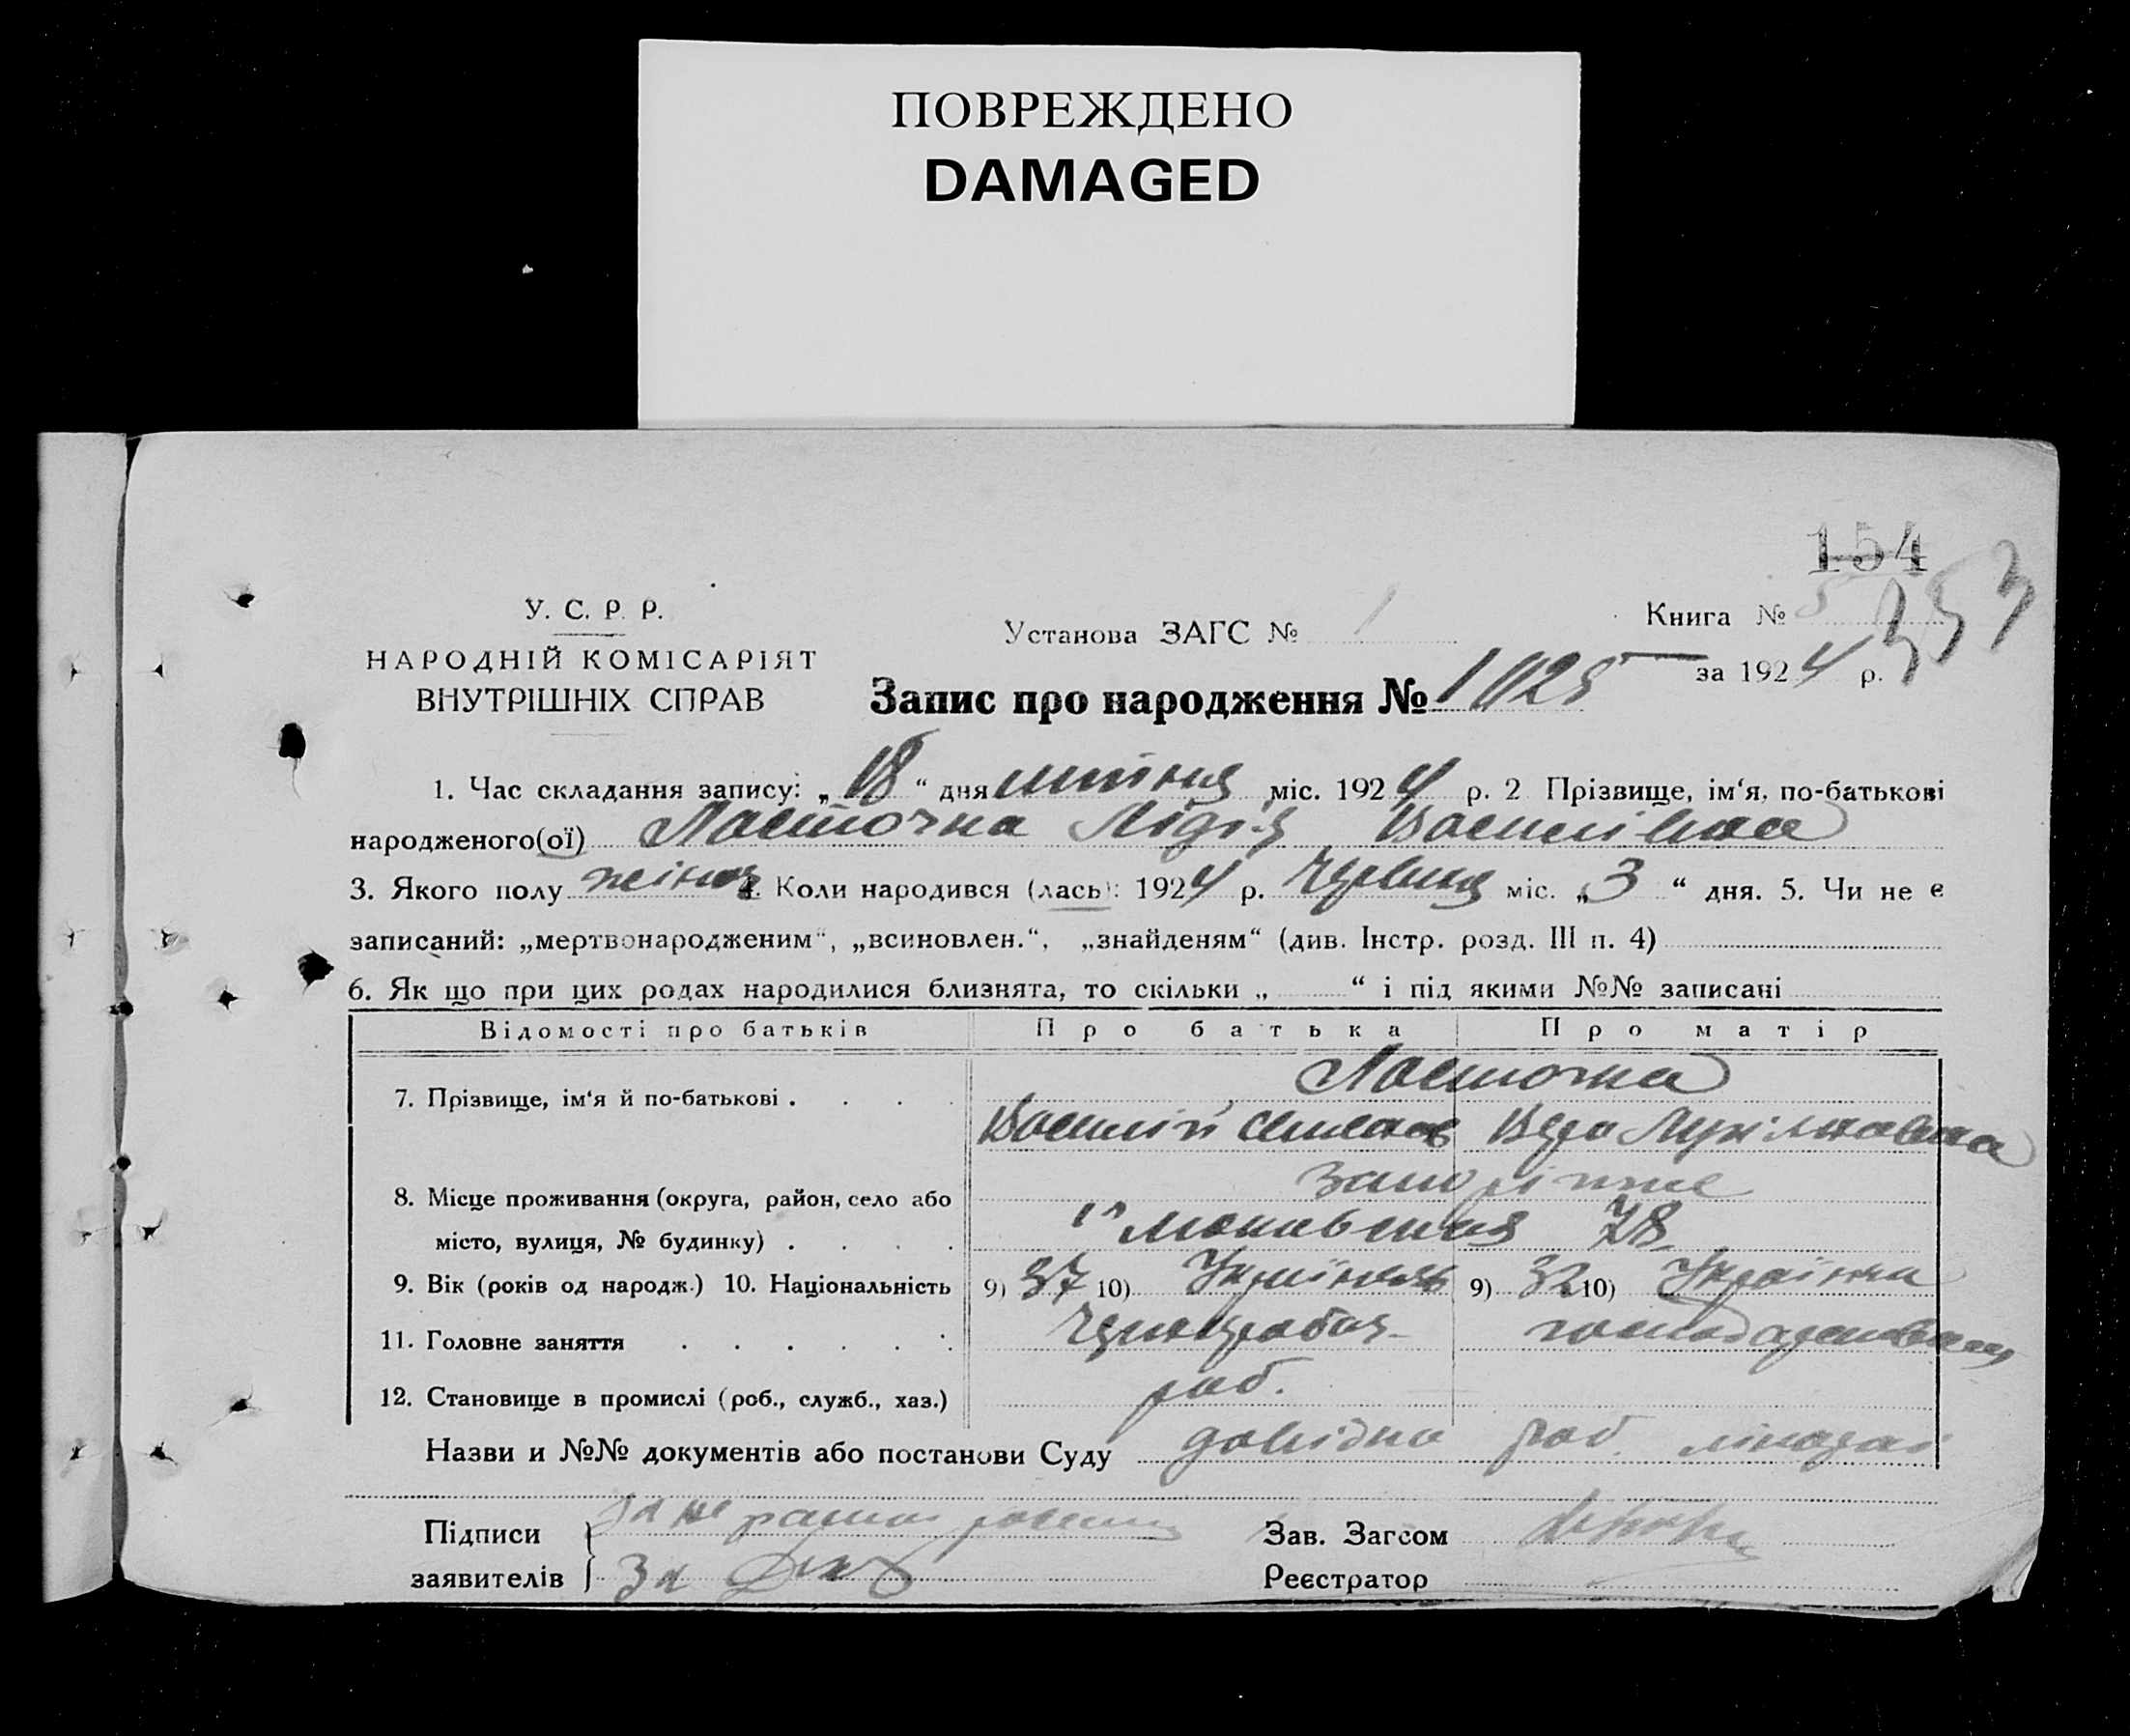 ПОВРЕЖДЕНО
DAMAGED
154
353
У. С. Р. Р.
НАРОДНІЙ КОМІСАРІЯТ
ВНУТРІШНІХ СПРАВ
Установа ЗАГС № 1
Книга № 5
за 1924 р.
Запис про народження № 1025
1. Час складання запису: „18“ дня липня міс. 1924 р. 2 Прізвище, ім‘я, по-батькові
народженого(ої) Ласточка Лідія Василівна
3. Якого полу жіноч 4. Коли народився (лась): 1924 р. Червня міс. „3“ дня. 5. Чи не є
записаний: „мертвонародженим“, „всиновлен.“, „знайденям“ (див. Інстр. розд. III п. 4)
6. Як що при цих родах народилися близнята, то скільки „ “ і під якими №№ записані
Відомості про батьків Про батька Про матір
7. Прізвище, ім‘я й по-батькові . . . . Ласточка
Василій Семенов Вера
8. Місце проживання (округа, район, село або
місто, вулиця, № будинку) . . . . 78
9. Вік (років од народж.) 10. Національність 9) 37 10) Українець 9) 32 10) Українка
11. Головне заняття . . . . . . Чорнороб
12. Становище в промислі (роб., служб., хаз.) роб.
Назви и №№ документів або постанови Суду довідка род.
Підписи
заявителів За
Зав. Загсом
Реєстратор